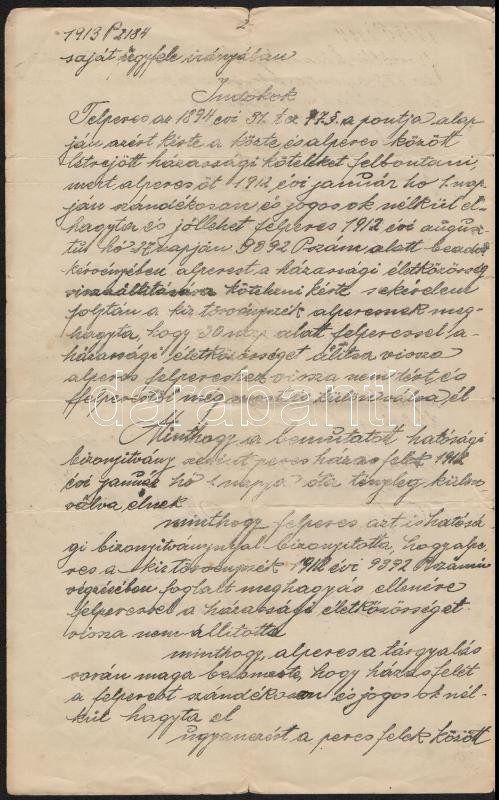 2
1913 P 2184
saját ügyfele irányában
Indokok
Felperes az 1894 évi 31. t. cz 77 § a pontja alap
ján azért kérte a közte és alperes között
létrejött házassági köteléket felbontani,
mert alperes őt 1912 évi január hó 1 nap
ján szándékosan és jogos ok nélkül el-
hagyta és jóllehet felperes 1912 évi augusz-
tus hó 27 napján 9392 P szám alatt beadott
kérvényében alperest a házassági életközösség
visszaállítására kötelezni kérte s e kérelem
folytán a kir törvényszék alperesnek meg-
hagyta, hogy 30 nap alatt felperessel a
házassági életközösséget állítsa vissza
alperes felpereshez vissza nem tért, és
felperestől még most is különválva él
darabanth
Minthogy a bemutatott hatósági
bizonyítvány szerint peres házas felek 1912
évi január hó 1 napja óta tényleg külön
válva élnek
minthogy felperes azt is hatósá
gi bizonyítványnyal bizonyította, hogy alpe
res a kir törvényszék 1912 évi 9392 P számú
végzésében foglalt meghagyás ellenére
felperessel a házassági életközösséget
vissza nem állította
minthogy, alperes a tárgyalás
során maga beismerte, hogy házasfelét
a felperest szándékosan és jogos ok nél-
kül hagyta el
ugyanezért a peres felek között